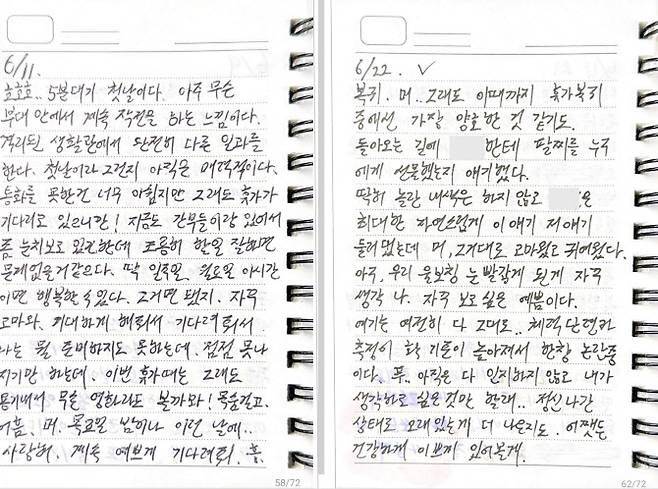 6/11.
호호호.. 5분대기 첫날이다. 아주 무슨
부대 안에서 계속 작전을 하는 느낌이다.
격리된 생활관에서 완전히 다른 일과를
한다. 첫날이라 그런지 아직은 매력적이다.
통화를 못한건 너무 아쉽지만 그래도 휴가가
기다리고 있으니깐! 지금도 간부들이랑 있어서
좀 눈치보고 있긴한데 조용히 할일 잘하면
문제없을거같은다. 딱 일주일, 월요일 이시간
이면 행복할수있다. 그거면 됐지. 자꾸
고마워. 기대하게 해줘서 기다려줘서
나는 뭘 준비하지도 못하는데. 점점 못나
지기만 하는데. 이번 휴가때는 그래도
용기내서 무슨 영화라도 볼까봐! 목숨걸고.
어흠. 머. 목요일 밤이나 이런 날에..
사랑해. 계속 예쁘게 기다려줘. 흥.
58/72
6/22. ✓
복귀. 머.. 그래도 이때까지 휴가복귀
중에선 가장 양호한 것 같기도.
돌아오는 길에 한테 팔찌를 누구
에게 선물했는지 얘기했다.
딱히 놀란 내색은 하지 않고 은
최대한 자연스럽게 이얘기 저얘기
들려줬는데 머, 그거대로 고마웠고 귀여웠다.
아주, 우리 울보찡 눈 빨갛게 된게 자꾸
생각 나. 자꾸 보고싶은 예쁨이다.
여기는 여전히 다 그대로.. 체력단련과
측정이 확 기준이 높아져서 한창 논란중
이다. 푸.. 아직은 다 인지하지 않고 내가
생각하고 싶은것만 할래.. 정신나간
상태로 오래있는게 더 나은지도. 어쨌든
건강하게 이쁘게 있어볼게.
62/72